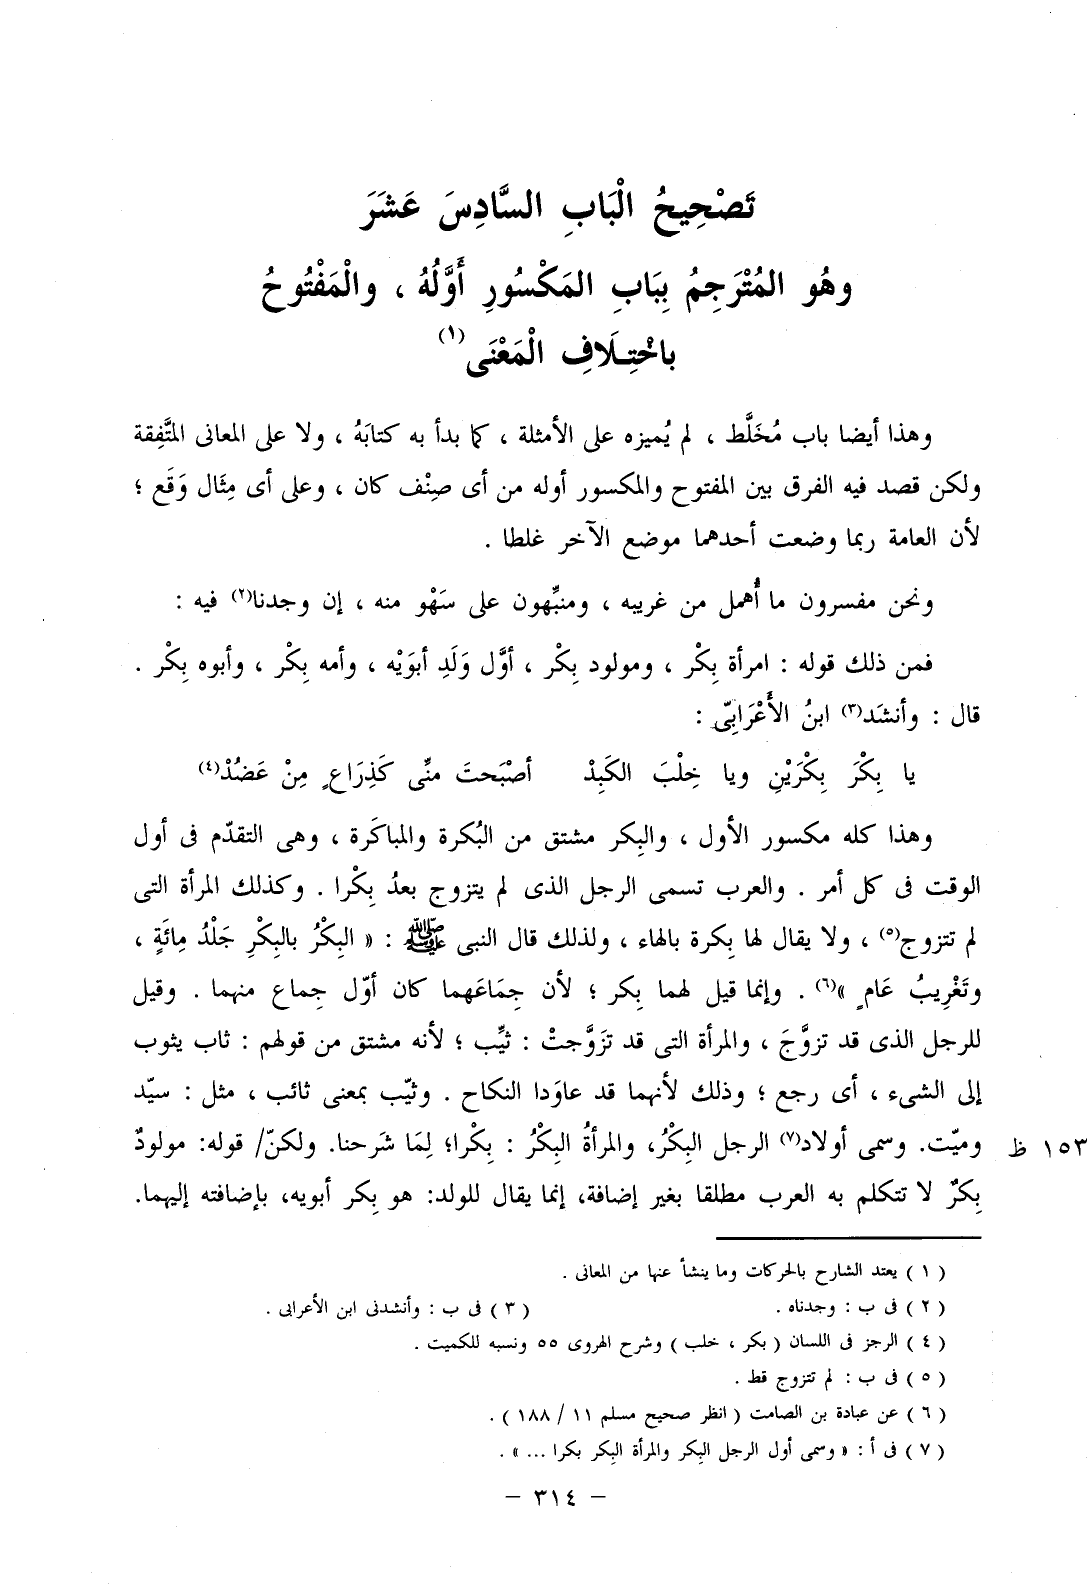 تَصْحِيحُ الْبَابِ السَّادِسَ عَشَرَ
وهُو المُتْرَجِمُ بِبَابِ المَكْسُورِ أَوَّلُهُ ، والْمَفْتُوحُ
باخْتِلَافِ الْمَعْنَى(١)
وهذا أيضا باب مُخَلَّط ، لم يُميزه على الأمثلة ، كما بدأ به كتابَهُ ، ولا على المعانى المتَّفِقة
ولكن قصد فيه الفرق بين المفتوح والمكسور أوله من أى صِنْف كان ، وعلى أى مِثَال وَقَع ؛
لأن العامة ربما وضعت أحدهما موضع الآخر غلطا .
ونحن مفسرون ما أُهمل من غريبه ، ومنبِّهون على سَهْو منه ، إن وجدنا(٢) فيه :
فمن ذلك قوله : امرأة بِكْر ، ومولود بِكْر ، أوَّل وَلَدِ أبوَيْه ، وأمه بِكْر ، وأبوه بِكْر .
قال : وأنشَد(٣) ابنُ الأَعْرَابِىّ :
يا بِكْرَ بِكْرَيْنِ ويا خِلْبَ الكَبِدْ أصْبَحتَ منِّى كَذِرَاعٍ مِنْ عَضُدْ(٤)
وهذا كله مكسور الأول ، والبِكر مشتق من البُكرة والمباكَرة ، وهى التقدّم فى أول
الوقت فى كل أمر . والعرب تسمى الرجل الذى لم يتزوج بعدُ بِكْرا . وكذلك المرأة التى
لم تتزوج(٥) ، ولا يقال لها بِكرة بالهاء ، ولذلك قال النبى ﷺ : « البِكْرُ بالبِكْرِ جَلْدُ مِائَةٍ ،
وتَغْرِيبُ عَامٍ »(٦) . وإنما قيل لهما بِكر ؛ لأن جِمَاعَهما كان أوّل جِماع منهما . وقيل
للرجل الذى قد تزوَّجَ ، والمرأة التى قد تزَوَّجتْ : ثيِّب ؛ لأنه مشتق من قولهم : ثاب يثوب
إلى الشىء ، أى رجع ؛ وذلك لأنهما قد عاوَدا النكاح . وثيّب بمعنى ثائب ، مثل : سيّد
وميّت. وسمى أولاد(٧) الرجل البِكْرُ، والمرأةُ البِكْرُ : بِكْرا؛ لِمَا شَرحنا. ولكنّ/ قوله: مولودٌ ١٥٣ ظ
بِكرٌ لا تتكلم به العرب مطلقا بغير إضافة، إنما يقال للولد: هو بِكر أبويه، بإضافته إليهما.
( ١ ) يعتد الشارح بالحركات وما ينشأ عنها من المعانى .
( ٢ ) فى ب : وجدناه . ( ٣ ) فى ب : وأنشدنى ابن الأعرابى .
( ٤ ) الرجز فى اللسان ( بكر ، خلب ) وشرح الهروى ٥٥ ونسبه للكميت .
( ٥ ) فى ب : لم تتزوج قط .
( ٦ ) عن عبادة بن الصامت ( انظر صحيح مسلم ١١ / ١٨٨ ) .
( ٧ ) فى أ : « وسمى أول الرجل البِكر والمرأة البِكر بكرا ... » .
– ٣١٤ –